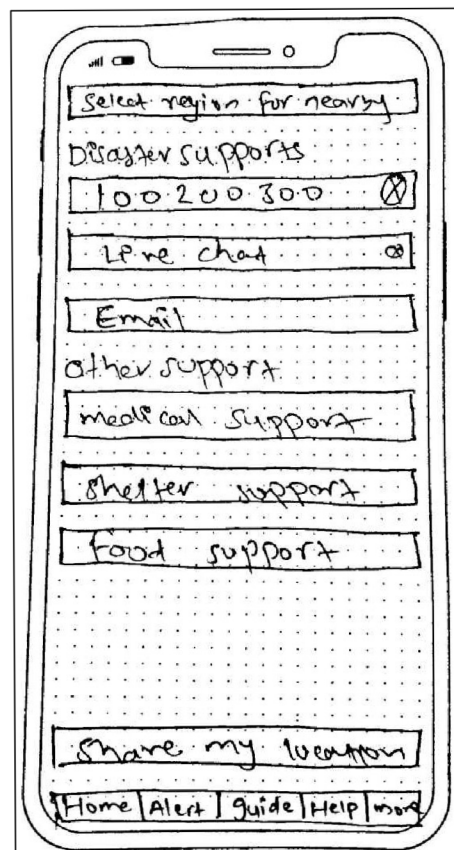 Select region for nearby
Disaster supports
100 200 300
Live chat
Email
other support
medical support
shelter support
food support
share my location
Home Alert guide Help more